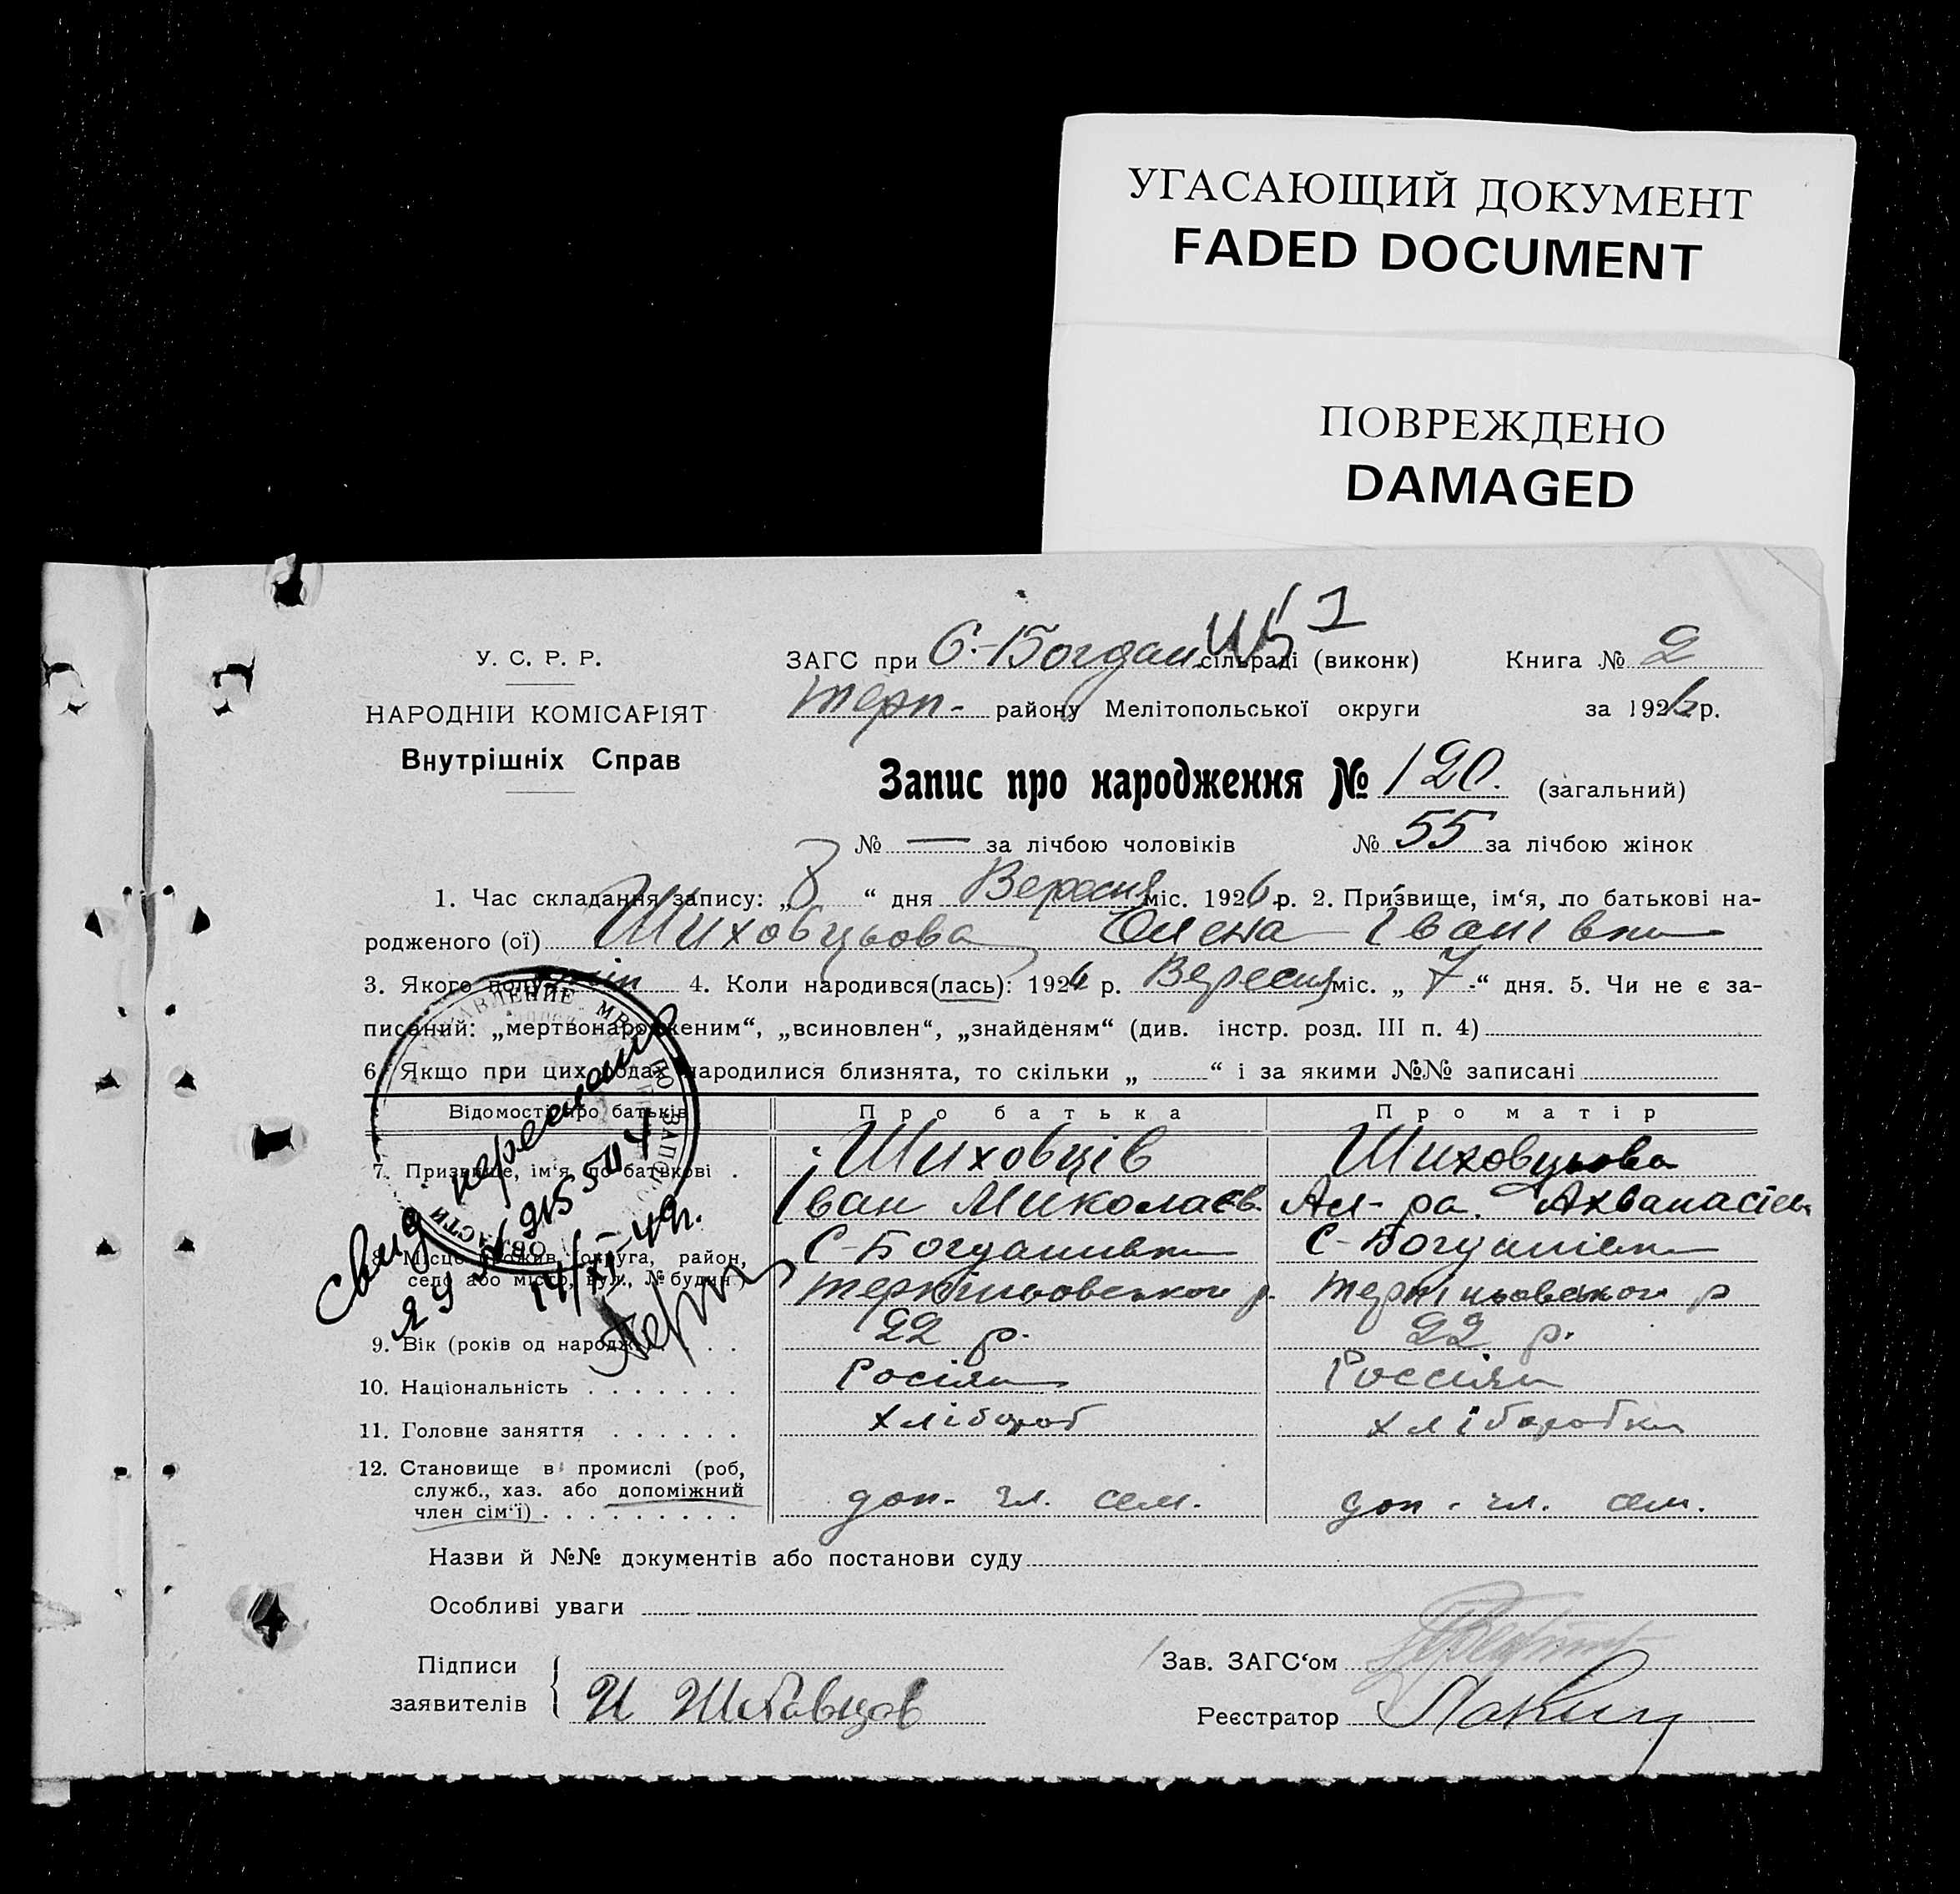 УГАСАЮЩИЙ ДОКУМЕНТ
FADED DOCUMENT
ПОВРЕЖДЕНО
DAMAGED
У. С. Р. Р.
НАРОДНІЙ КОМІСАРІЯТ
Внутрішніх Справ
ЗАГС при С.-Богдан сільраді (виконк) Книга № 2
Терп- району Мелітопольської округи за 1926 р.
Запис про народження № 120. (загальний)
№ — за лічбою чоловіків № 55 за лічбою жінок
1. Час складання запису: „8 “ дня Вересня міс. 1926 р. 2. Призвище, ім‘я, по батькові на-
родженого (ої) Шиховцьова Олена Іванівна
3. Якого полу жін 4. Коли народився(лась): 1926 р. Вересня міс. „ 7 “ дня. 5. Чи не є за-
писаний: „мертвонародженим“, „всиновлен“, „знайденям“ (див. інстр. розд. III п. 4)
6. Якщо при цих родах народилися близнята, то скільки „ “ і за якими №№ записані
Відомості про батьків Про батька Про матір
7. Призвище, ім‘я, по батькові Шиховців Шиховцьова
Іван Миколаєв. Ал-ра. Ахванасієв
8. Місце прожив. (округа, район, С-Богданивка С-Богданівка
село або місто, вул., № будин.) терпіньовського р. терпіньовського р
9. Вік (років од народж.) 22 р. 22 р.
10. Національність Росіян Россіян
11. Головне заняття хлібороб хліборобка
12. Становище в промислі (роб,
служб., хаз. або допоміжний доп- чл. сем. доп- чл. сем.
член сім‘ї)
Назви й №№ документів або постанови суду
Особливі уваги
Підписи Зав. ЗАГС‘ом
заявителів И Шиховцов Реєстратор
УПРАВЛЕНИЕ МВД ПО ЗАПОРО ОБЛАСТИ
Свид пересилано
ЯУ № 215504
14/XI-49г.